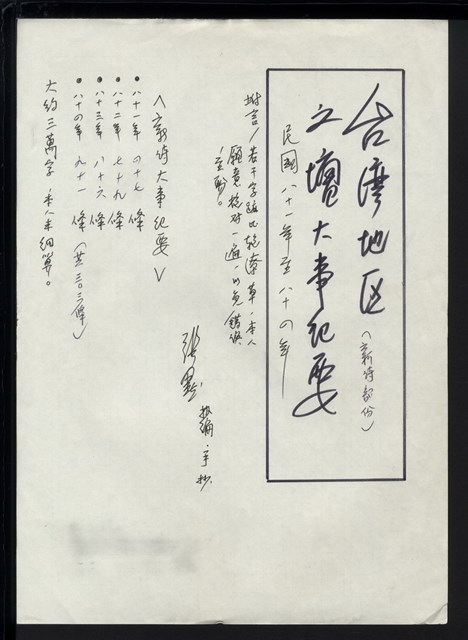 台灣地区（新詩部份）
文壇大事紀要
民國八十一年至八十四年
附言/若干字跡比較潦草，本人
願意校对一遍，以免錯悮
張默 編、手抄
〈新詩大事紀要〉
●八十一年 四十七 條
●八十二年 七十九 條
●八十三年 八十六 條
●八十四年 九十一 條（共三〇三條）
大約三萬字，本人未細算。